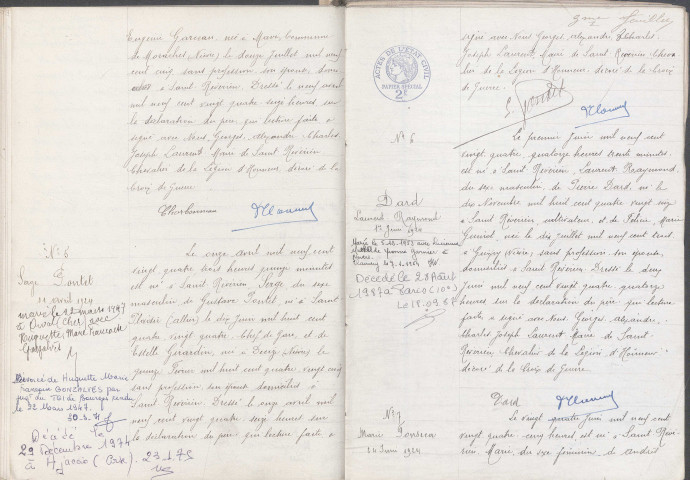 Eugénie Garnan, née à Mave, Commune
de Moraches, Nièvre, le douze Juillet mil neuf
cent cinq, sans profession, son épouse, domi-
ciliés à Saint Révérien. Dressé le neuf avril
mil neuf cent vingt quatre seize heures sur
la déclaration du père, qui lecture faite a
signé avec Nous, Georges, Alexandre, Charles
Joseph Laurent, Maire de Saint Révérien
Chevalier de la Légion d'Honneur, décoré de la
Croix de Guerre.
Charbonneau
N° 6
Serge Pontet
11 avril 1924
marié le 22 mars 1947
à Orval (Cher) avec
Huguette, Marie Françoise
Divorcé de Huguette Marie
Françoise GONCALVES par
jugt du TGI de Bourges rendu
le 22 Mars 1947.
Décédé le
29 décembre 1974
à Ajaccio (Corse) 23-1-75
Le onze avril mil neuf cent
vingt quatre trois heures minutes
est né à Saint Révérien Serge du sexe
masculin de Gustave Pontet né à Saint
(Allier) le dix Juin mil huit cent
quatre vingt quatre, Chef de Gare, et de
Estelle Girardin, née à Decize Nièvre le
quinze mil huit cent quatre vingt cinq
sans profession, son épouse domiciliés à
Saint Révérien. Dressé le onze avril mil
neuf cent vingt quatre seize heures sur
la déclaration du père, qui lecture faite a
2me feuillet
signé avec Nous Georges, Alexandre, Charles
Joseph Laurent, Maire de Saint Révérien Cheva-
lier de la Légion d'Honneur, décoré de la Croix
de Guerre.
ACTES DE L'ÉTAT CIVIL
PAPIER SPÉCIAL
2F
G. Pontet
N° 6
Dard
Laurent Raymond
1er Juin 1924
Décédé le 28 Août
1987 à Paris (10e)
Le 18.09.87
Le premier Juin mil neuf cent
vingt quatre, quatorze heures trente minutes
est né à Saint Révérien, Laurent Raymond,
du sexe masculin, de Pierre Dard, né le
dix Novembre mil huit cent quatre vingt
à Saint Révérien cultivateur, et de Félicie, Marie
née le dix juillet mil neuf cent
à Guipy Nièvre, sans profession, son épouse,
domiciliés à Saint Révérien. Dressé le deux
Juin mil neuf cent vingt quatre quatorze
heures sur la déclaration du père qui lecture
faite, a signé avec Nous, Georges, Alexandre,
Charles Joseph Laurent Maire de Saint
Révérien Chevalier de la Légion d'Honneur
décoré de la Croix de Guerre.
Dard
N° 7
Marie
24 Juin 1924
Le vingt quatre Juin mil neuf cent
vingt quatre, cinq heures, est née à Saint Révé-
rien, Marie, du sexe féminin, de